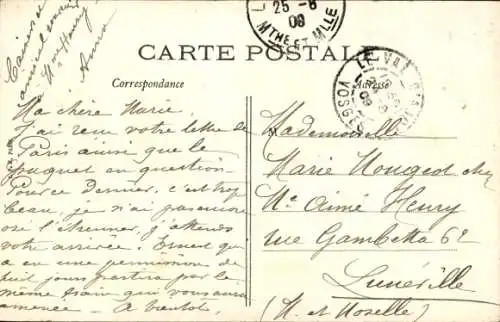 25 - 6
09
MTHE ET MLLE
CARTE POSTALE
Correspondance
Adresse
LE VAL D'AJOL
VOSGES
09
Ma chère Marie
J'ai reçu votre lettre de
Paris ainsi que le
paquet en question
Pour ce dernier, c'est trop
beau, je n'ai pas encore
osé l'étrenner, j'attends
votre arrivée. Ernest qui
a eu une permission de
huit jours partira par le
même train qui vous aura
amenée - A bientôt
Mademoiselle
Marie Nougeot chez
Mr Aimé Henry
rue Gambetta 62
Lunéville
(M. et Moselle)